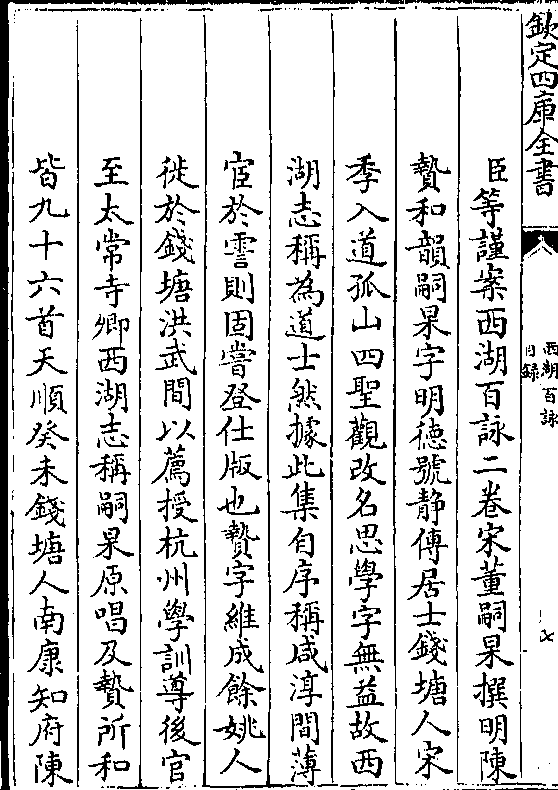 欽定四庫全書
西湖百詠
目錄
臣等謹案西湖百詠二卷宋董嗣杲撰明陳
贄和韻嗣杲字明德號静傳居士錢塘人宋
季入道孤山四聖觀改名思學字無益故西
湖志稱為道士然據此集自序稱咸淳間薄
宦於霅則固嘗登仕版也贄字維成餘姚人
徙於錢塘洪武間以薦授杭州學訓導後官
至太常寺卿西湖志稱嗣杲原唱及贄所和
皆九十六首天順癸未錢塘人南康知府陳